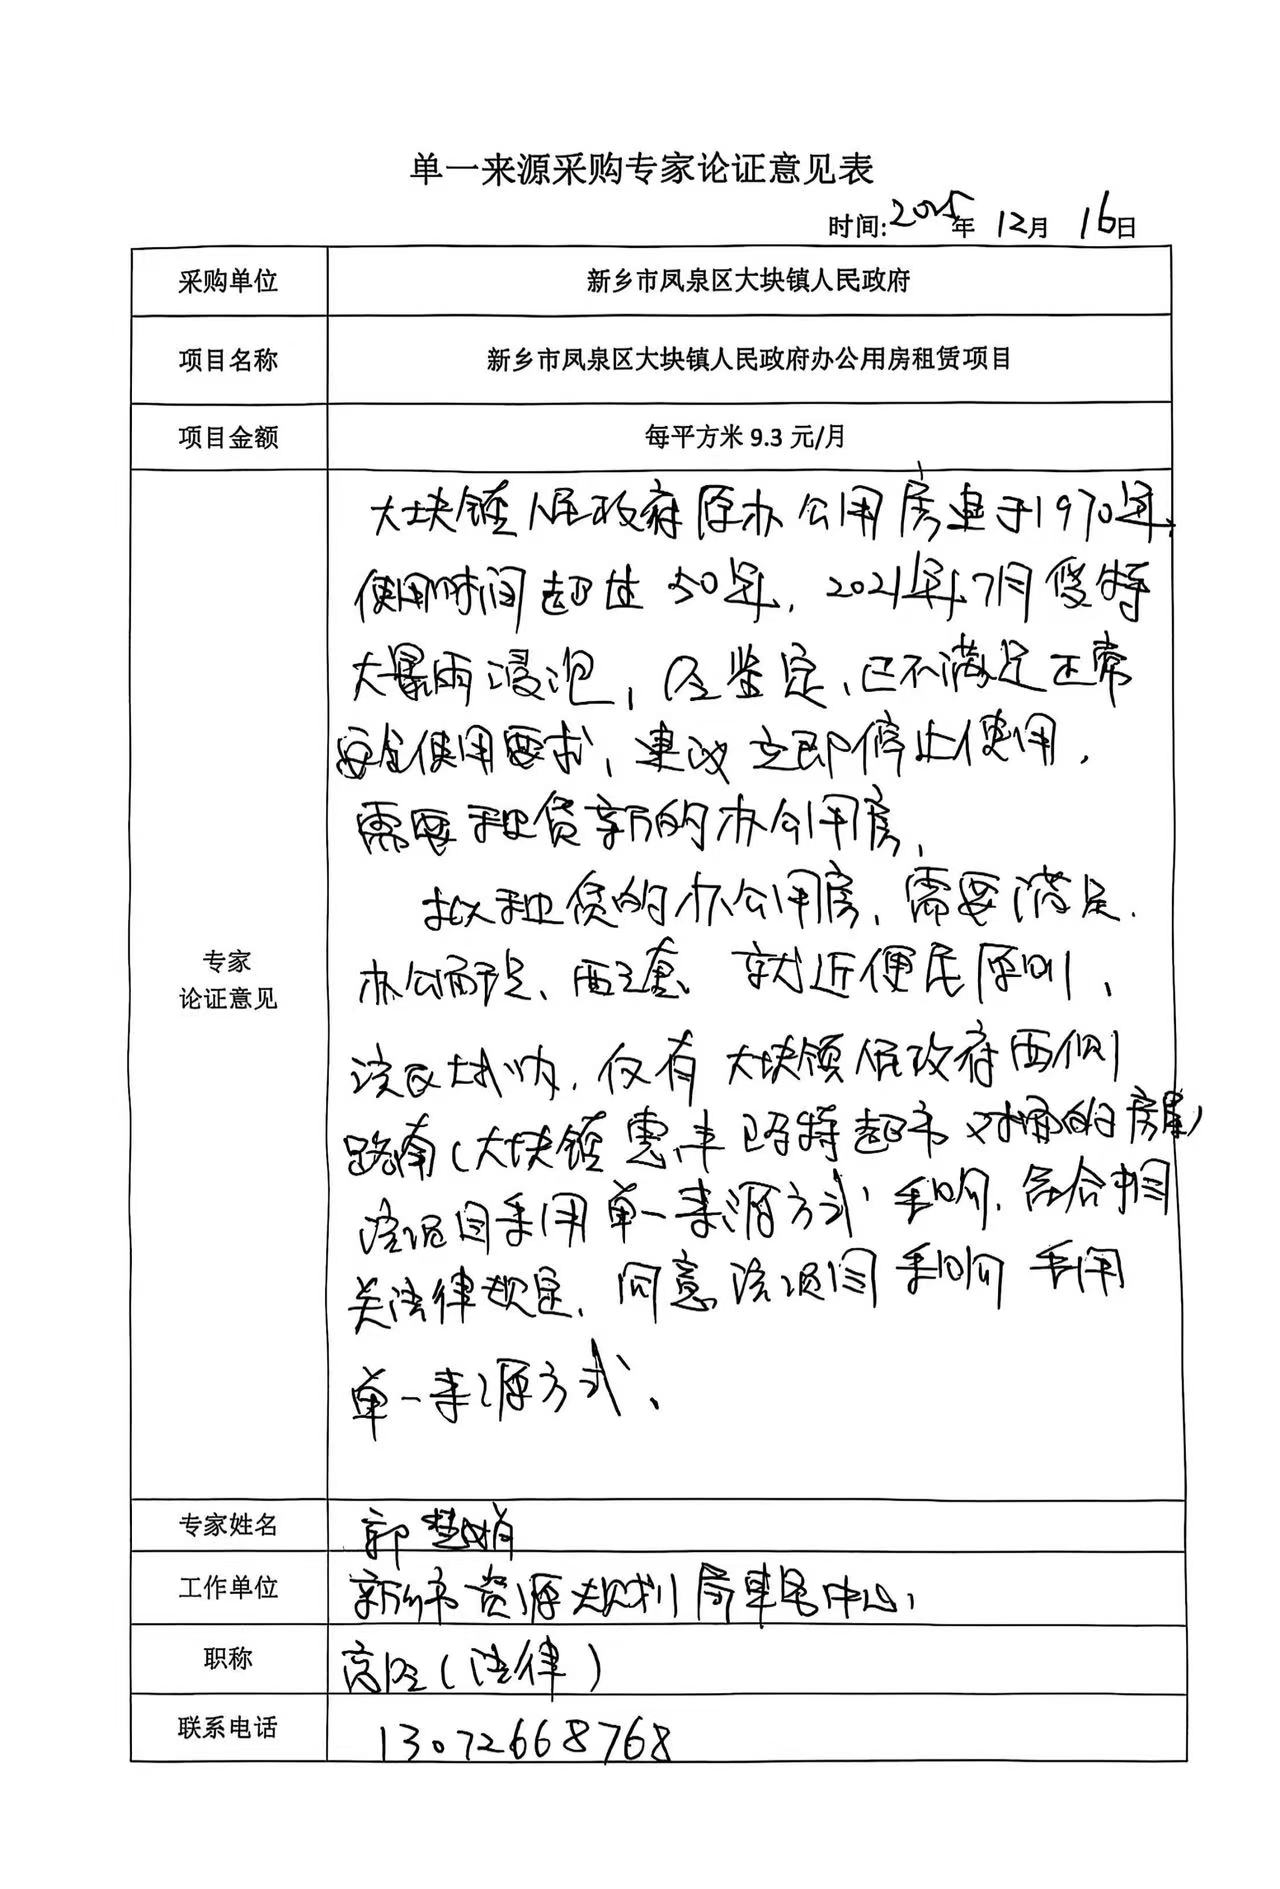 单一来源采购专家论证意见表
时间:2025年 12月 16日
采购单位 新乡市凤泉区大块镇人民政府
项目名称 新乡市凤泉区大块镇人民政府办公用房租赁项目
项目金额 每平方米 9.3 元/月
专家
论证意见
大块镇人民政府原办公用房建于1970年,
使用时间超过50年,2021年7月受特
大暴雨浸泡,经鉴定,已不满足正常
安全使用要求,建议立即停止使用,
需要租赁新的办公用房,
拟租赁的办公用房,需要满足
办公需求、就近便民原则,
该区域内,仅有大块镇人民政府西侧
路南(大块镇惠丰超市对面的房屋)
该项目采用单一来源方式采购,符合相
关法律规定,同意该项目采购采用
单一来源方式、
专家姓名 郭慧娟
工作单位 新乡市资源规划局事务中心,
职称 高级(法律)
联系电话 13072668768